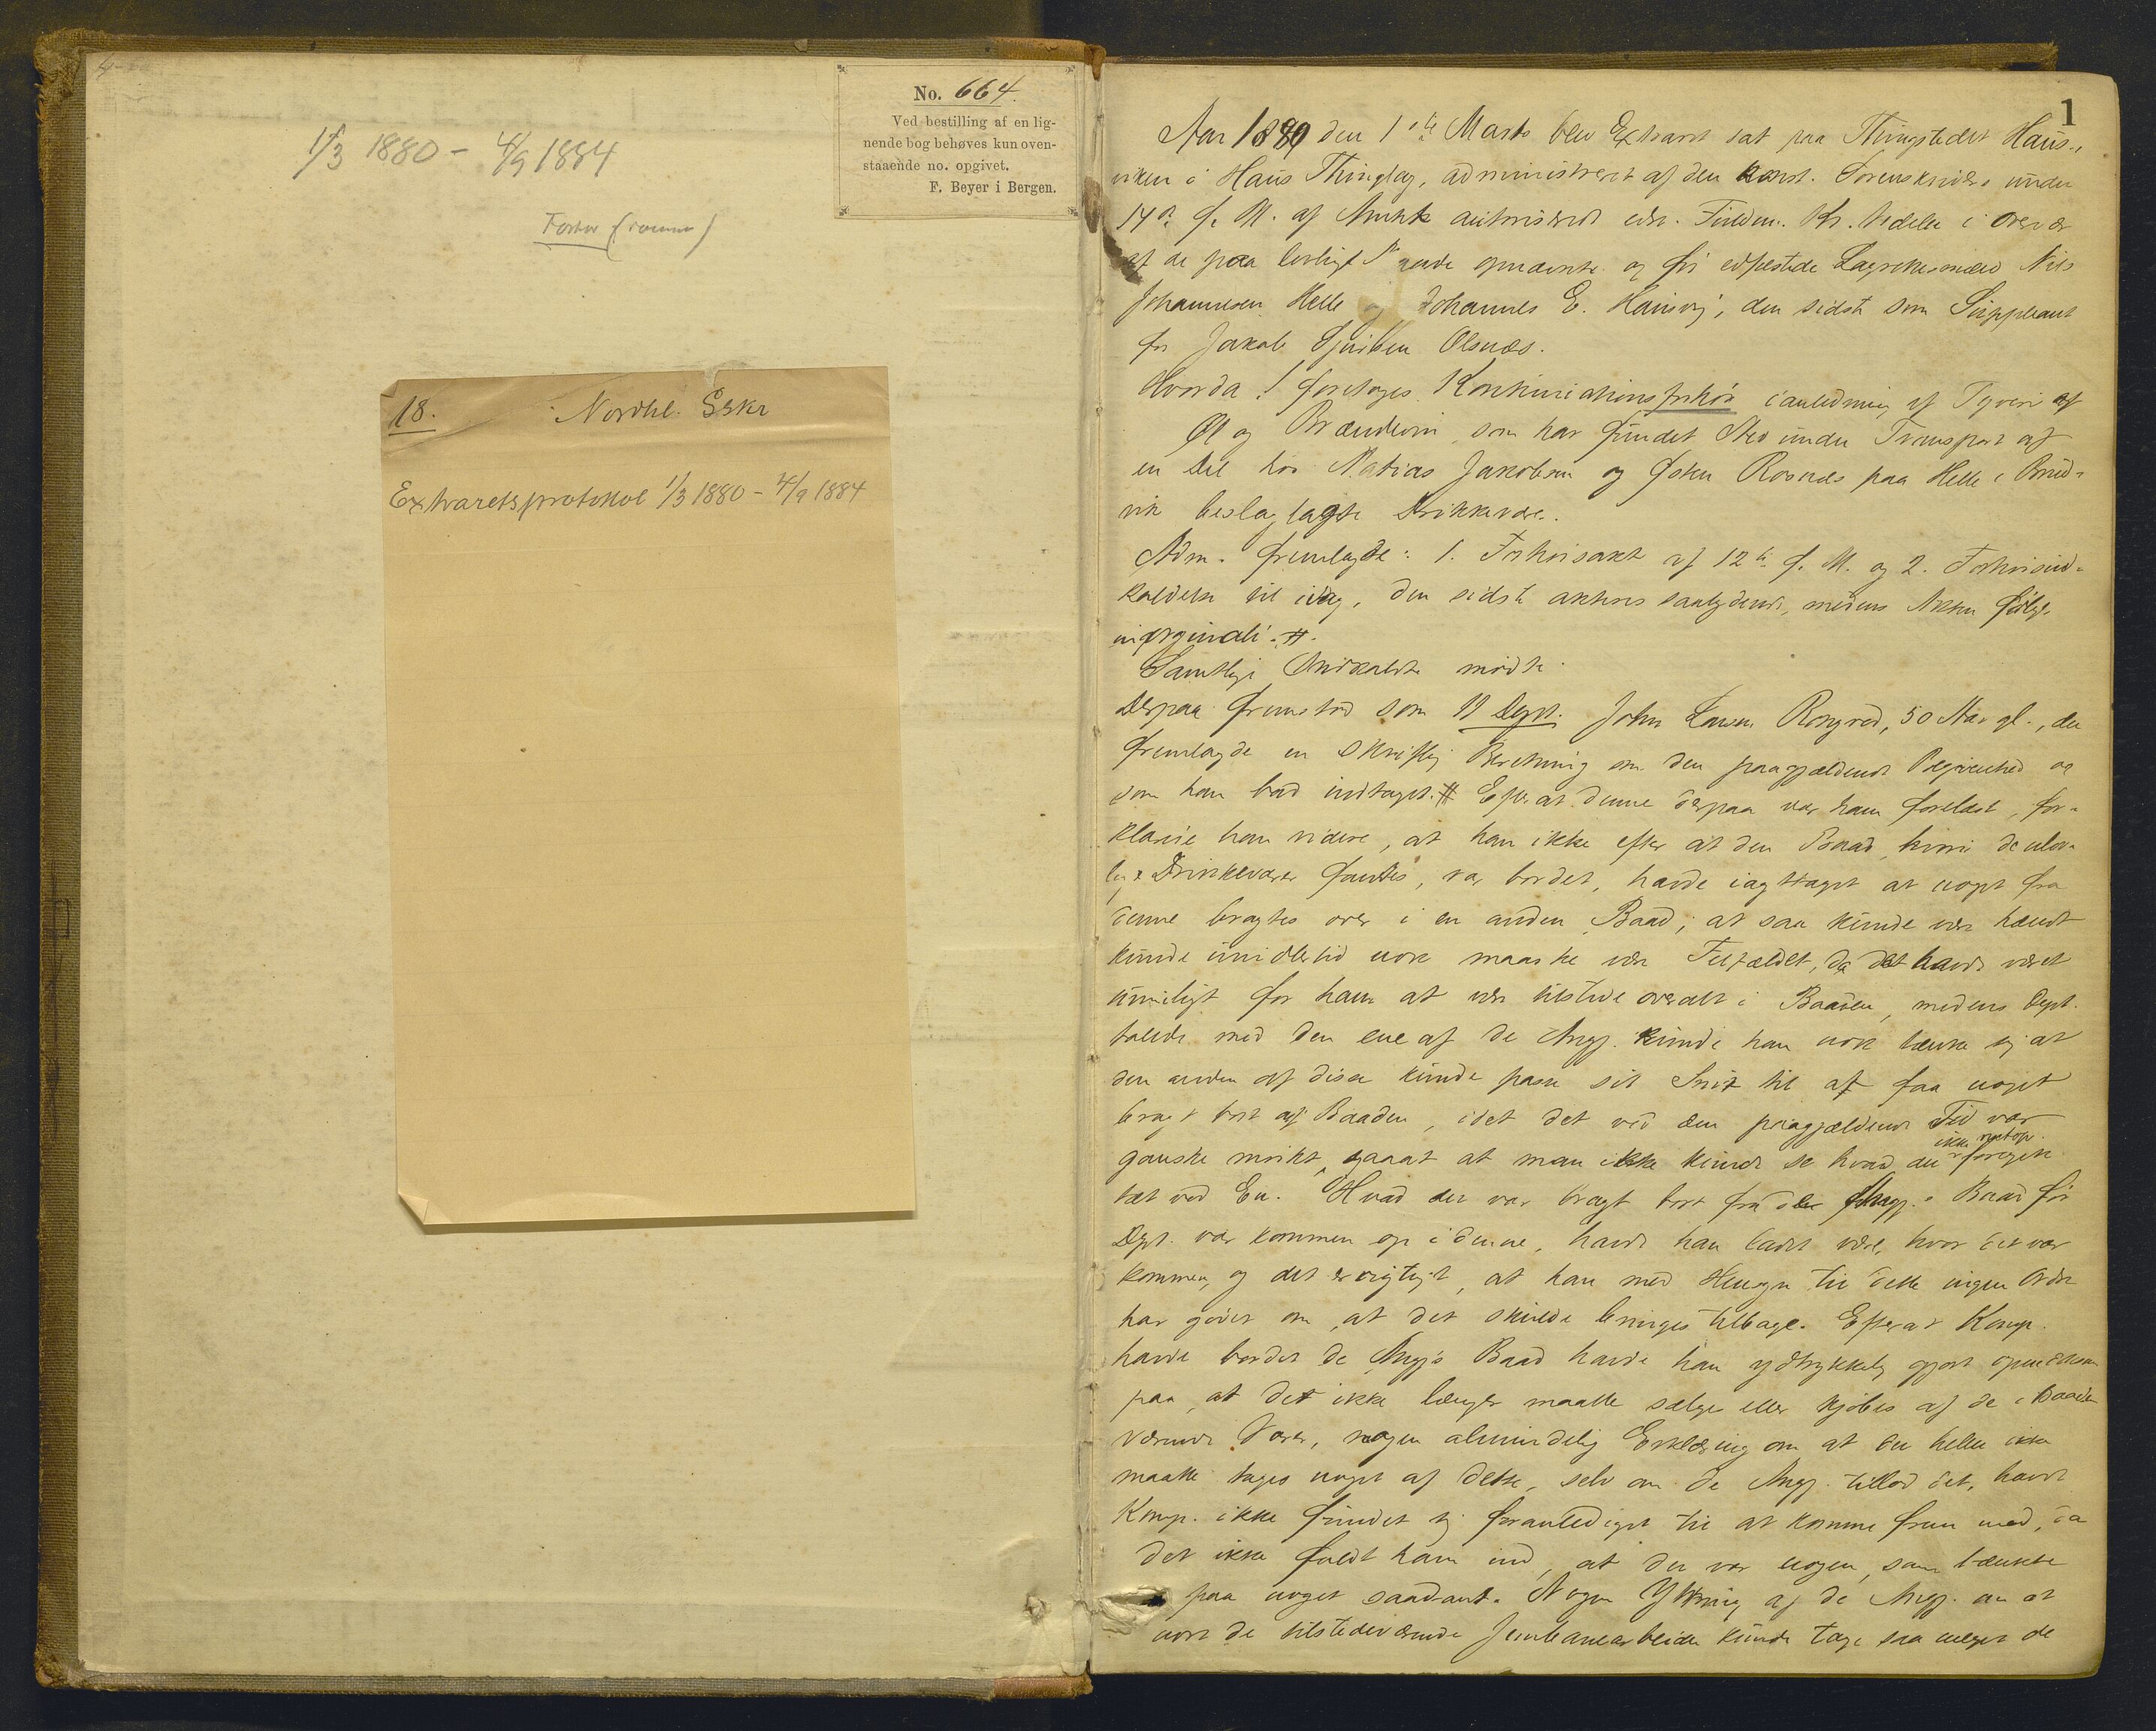 1/3 1880 - 4/9 1884
No. 664.
Ved bestilling af en lig-
nende bog behøves kun oven-
staaende no. opgivet.
F. Beyer i Bergen.
18. Nordhl. Sskr
Extraretsprotokol 1/3 1880 - 4/9 1884
1
Aar 1880 den 1ste Marts blev Extraret sat paa Thingstedet Haus-
viken i Haus Thinglag, administreret af den konst. Sorenskriver under
14de f. M. af Amtet autoriserede edsv. Fuldm. Kr. Vedeler i Overvær
af de paa lovligt opnævnte og før edfæstede Lagrettesmænd Nils
Johannesen Helle og Johannes E. Hausvig, den sidste som Suppleant
for Jakob Olsnæs.
Hvorda! foretoges Kontinuationsforhør i anledning af Tyveri af
Øl og Brændevin, som har fundet Sted under Transport af
en Del hos Matias Jakobsen og Rosnæs paa Helle i Brud-
vik beslaglagte Drikkevarer.
Adm. fremlagde: 1. Forhørsakt af 12te f. M. og 2. Forhørsind-
kaldelse til idag, den sidste aktens saalydende, medens Akten følger
in originali. #.
Samtlige Indkaldte mødte.
Derpaa fremstod som 11 Dept. John Larsen, 50 Aar gl., der
fremlagde en skriftlig Beretning om den paagjældende Begivenhed og
som han bad indtaget. # Efterat denne derpaa var ham forelæst, for-
klarede han videre, at han ikke efter at den Baad, hvori de ulov-
lige Drikkevarer fandtes, var bordet, havde iagttaget at noget fra
denne bragtes over i en anden Baad; at saa kunde være hændt
kunde imidlertid nok maaske være Tilfældet, da det havde været
umuligt for ham at være tilstede overalt i Baaden, medens Dept.
talede med den ene af de Angj. kunde han nok tænke sig at
den anden af disse kunde passe sit Snit til at faa noget
bragt bort af Baaden, idet det ved den paagjældende Tid var
ganske mørkt, saaat at man ikke kunde se hvad der ikke netop foregik
tæt ved En. Hvad der var bragt bort fra de Angj.s Baad før
Dept. var kommen op i denne, havde han ladet være, hvor det var
kommen, og det er rigtigt, at han med Hensyn til dette ingen Ordre
har givet om, at det skulde bringes tilbage. Efterat Komp.
havde bordet de Angj.s Baad havde han udtrykkelig gjort opmærksom
paa, at det ikke længer maatte sælges eller kjøbes af de i Baaden
værende Varer, nogen almindelig Erklæring om at der heller ikke
maatte tages noget af dette, selv om de Angj. tillod det, havde
Komp. ikke fundet sig foranlediget til at komme frem med, da
det ikke faldt ham ind, at der var nogen, som tænkte
paa noget saadant. Nogen Yttring af de Angj. om at
nok de tilstedeværende Jernbanearbeidere kunde tage saa meget de